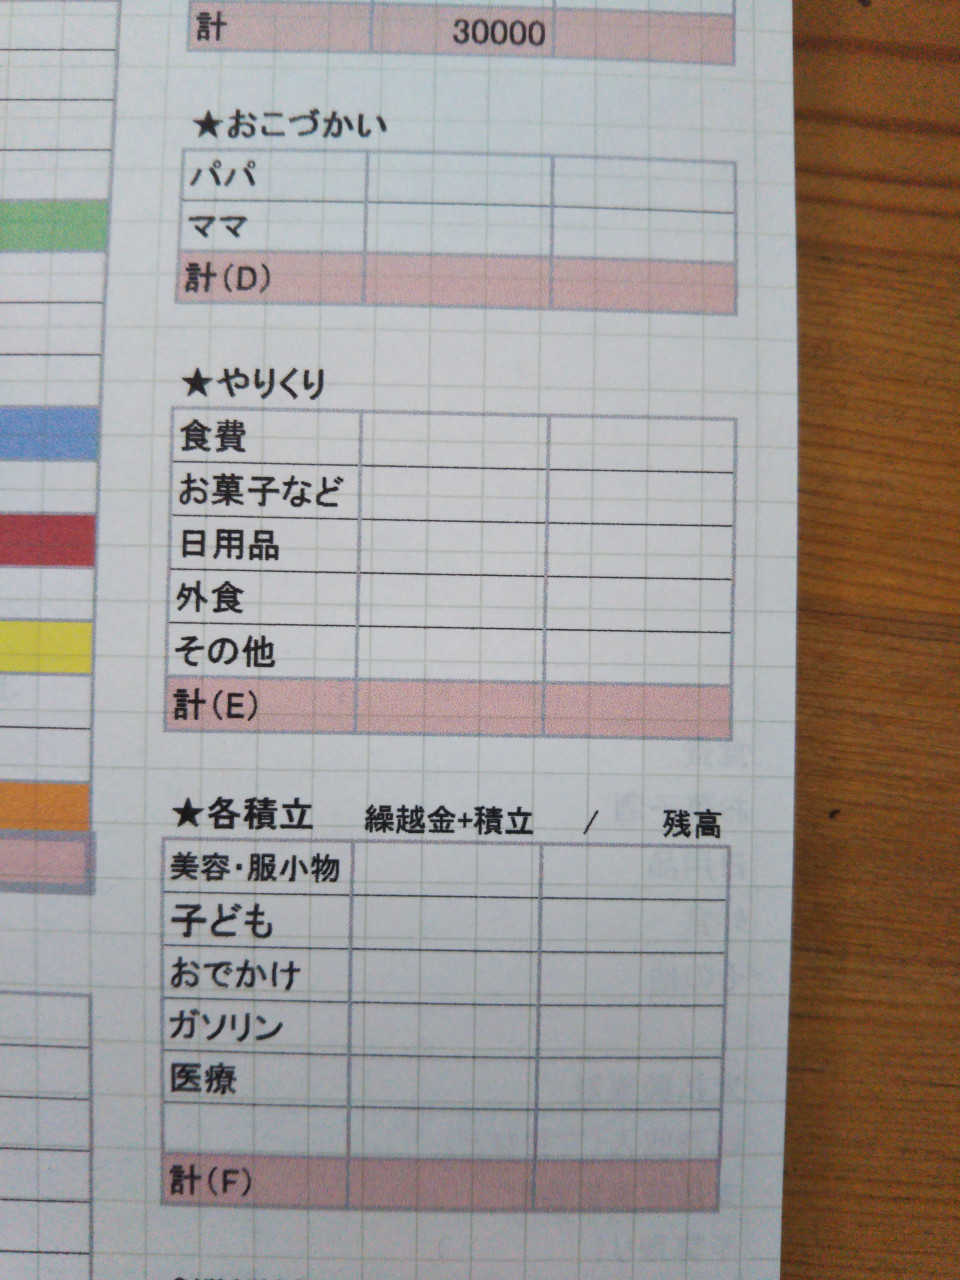 計 30000
★おこづかい
パパ
ママ
計(D)
★やりくり
食費
お菓子など
日用品
外食
その他
計(E)
★各積立 繰越金+積立 / 残高
美容・服小物
子ども
おでかけ
ガソリン
医療
計(F)